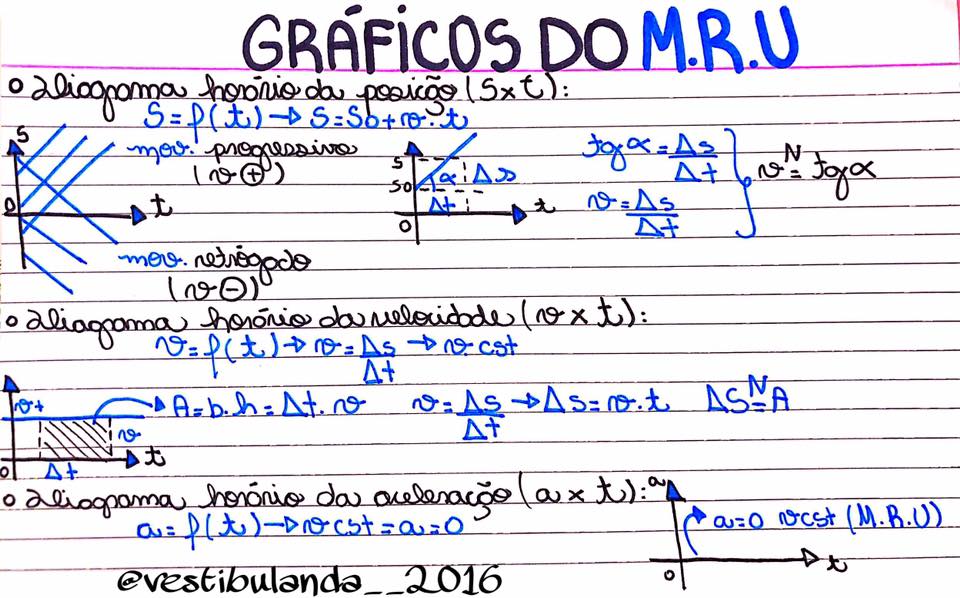 GRÁFICOS DO M.R.U
o Diagrama horário da posição (S x t):
S = f(t) → S = So + v.t
S
mov. progressivo
(v ⊕)
0
t
mov. retrógado
(v ⊖)
S
So
α
Δs
Δt
0
t
tg α = Δs/Δt
v = Δs/Δt
v N= tg α
o Diagrama horário da velocidade (v x t):
v = f(t) → v = Δs/Δt → v cst
v+
A = b.h = Δt. v
v = Δs/Δt → Δs = v.t
ΔS N= A
v
0
Δt
t
o Diagrama horário da aceleração (a x t):
a = f(t) → v cst = a = 0
a
a = 0 v cst (M.R.U)
0
t
@vestibulanda__2016